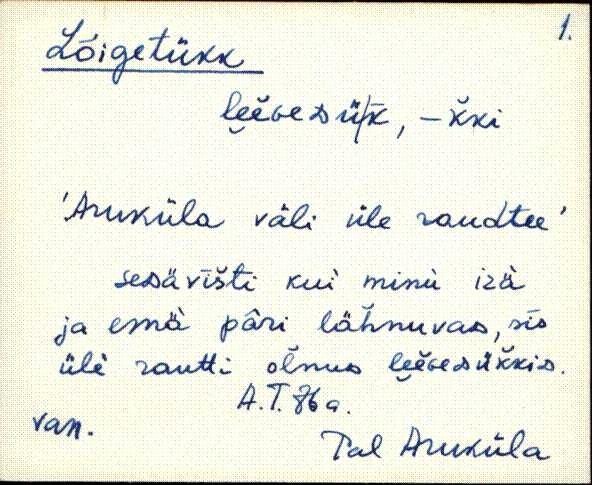 1.
Lõigetükk
l̮eĕɢesük̄, -k̆ki
'Aruküla väli üle raudtee'
sesävīšti kui minù izä̀
ja emä̀ pâri läh̆nuvas, sīs
ülè rautti ol̆nus l̮eĕɢesük̆kis.
A.T. 86 a.
van.
Tal Aruküla